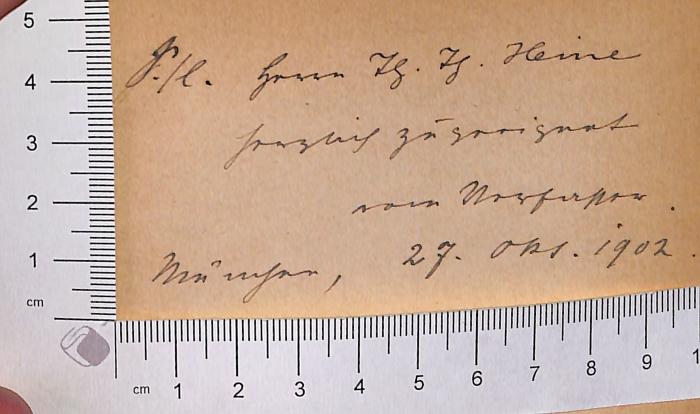 S./l. Herrn Th. Th. Heine
herzlich zugeeignet
vom Verfasser.
München, 27. Okt. 1902.
5
4
3
2
1
cm
cm 1 2 3 4 5 6 7 8 9 1